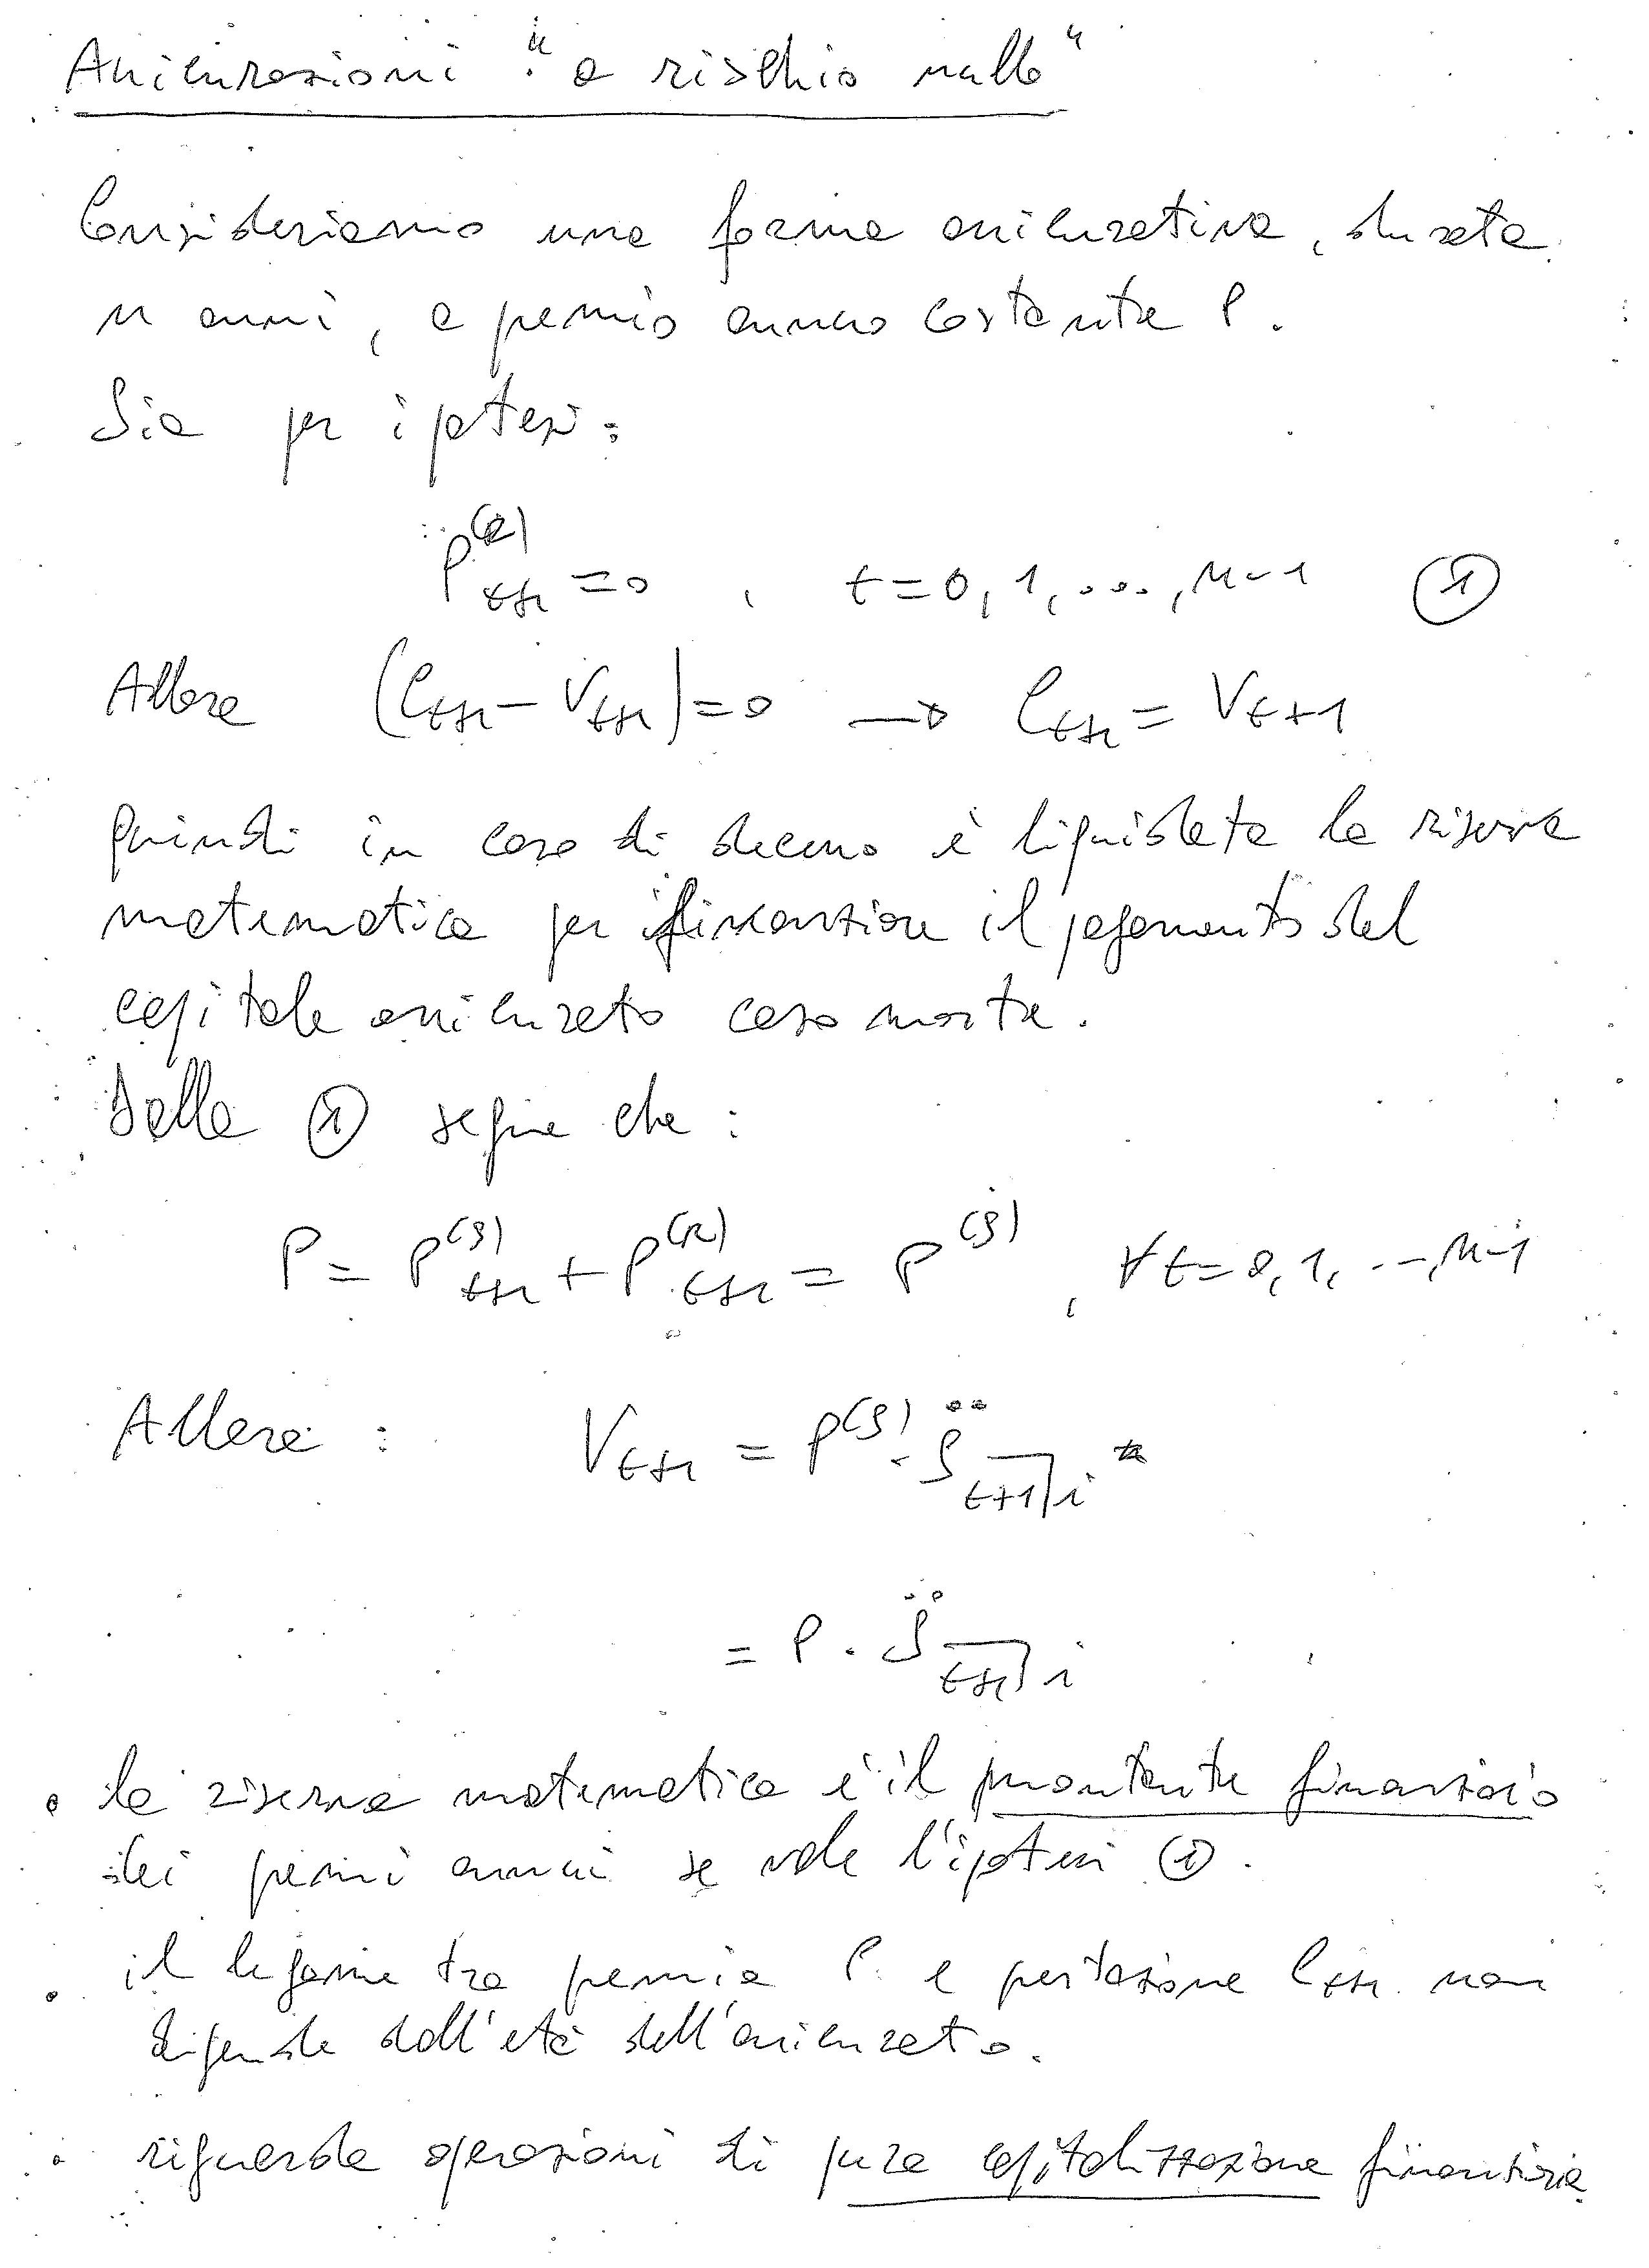 Assicurazioni "a rischio nullo"
Consideriamo una forma assicurativa, durata
n anni, a premio annuo costante P.
Sia per ipotesi:
P^{(R)}_{t+1} = 0 , t = 0, 1, ..., n-1 ①
Allora (C_{t+1} - V_{t+1}) = 0 → C_{t+1} = V_{t+1}
quindi in caso di decesso è liquidata la riserva
matematica per finanziare il pagamento del
capitale assicurato caso morte.
Dalla ① segue che:
P = P^{(S)}_{t+1} + P^{(R)}_{t+1} = P^{(S)} , ∀ t = 0, 1, ..., n-1
Allora : V_{t+1} = P^{(S)} · s̈_{t+1⌉i}
= P · s̈_{t+1⌉i}
• la riserva matematica è il montante finanziario
dei premi annui se vale l'ipotesi ①.
• il legame tra premio P e prestazione C_{t+1} non
dipende dall'età dell'assicurato.
• riguarda operazioni di pura capitalizzazione finanziaria